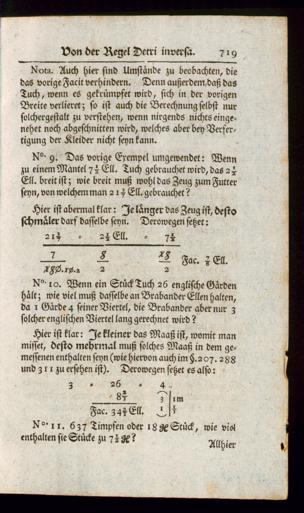 Von der Regel Detri inversa. 719
Nota. Auch hier sind Umstände zu beobachten, die
das vorige Facit verhindern. Denn außerdem, daß das
Tuch, wenn es gekrümpfet wird, sich in der vorigen
Breite verlieret; so ist auch die Berechnung selbst nur
solchergestalt zu verstehen, wenn nirgends nichts einge-
nehet noch abgeschnitten wird, welches aber bey Verfer-
tigung der Kleider nicht seyn kann.
No. 9. Das vorige Exempel umgewendet: Wenn
zu einem Mantel 7 Ell. Tuch gebrauchet wird, das 2
Ell. breit ist; wie breit muß wohl das Zeug zum Futter
seyn, von welchem man 21 Ell. gebrauchet?
Hier ist abermal klar: Je länger das Zeug ist, desto
schmäler darf dasselbe seyn. Derowegen setzet:
21 • 2 Ell. • 7
7 8 8 Fac. Ell.
2 2
No. 10. Wenn ein Stück Tuch 26 englische Gärden
hält; wie viel muß dasselbe an Brabander Ellen halten,
da 1 Gärde 4 seiner Viertel, die Brabander aber nur 3
solcher englischen Viertel lang gerechnet wird?
Hier ist klar: Je kleiner das Maaß ist, womit man
misset, desto mehrmal muß solches Maaß in dem ge-
messenen enthalten seyn (wie hiervon auch im §. 207. 288
und 311 zu ersehen ist). Derowegen setzet es also:
3 • 26 • 4
8⅔ 3 1m
Fac. 34⅔ Ell. 1 ⅓
No. 11. 637 Timpfen oder 18 ge Stück, wie viel
enthalten sie Stücke zu 7½ ge?
Allhier